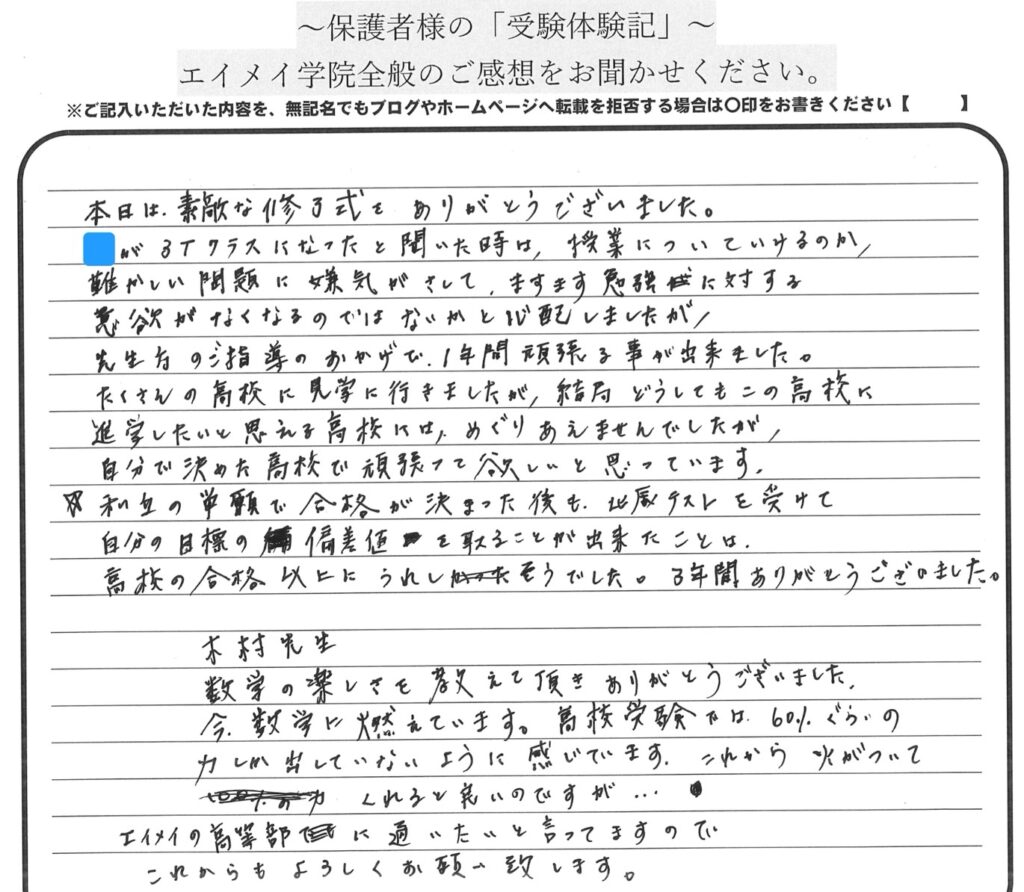 ～保護者様の「受験体験記」～
エイメイ学院全般のご感想をお聞かせください。
※ご記入いただいた内容を、無記名でもブログやホームページへ転載を拒否する場合は〇印をお書きください【　　】
本日は、素敵な修了式をありがとうございました。
が3Tクラスになったと聞いた時は、授業についていけるのか、
難かしい問題に嫌気がさして、ますます勉強に対する
意欲がなくなるのではないかと心配しましたが、
先生方のご指導のおかげで、1年間頑張る事が出来ました。
たくさんの高校に見学に行きましたが、結局どうしてもこの高校に
進学したいと思える高校には、めぐりあえませんでしたが、
自分で決めた高校で頑張って欲しいと思っています。
☆私立の単願で合格が決まった後も、北辰テストを受けて
自分の目標の偏差値を取ることが出来たことは、
高校の合格以上にうれしそうでした。3年間ありがとうございました。
木村先生
数学の楽しさを教えて頂きありがとうございました。
今、数学に燃えています。高校受験では、60%ぐらいの
力しか出していないように感じています。これから火がついて
くれると良いのですが…
エイメイの高等部に通いたいと言ってますので
これからもよろしくお願い致します。